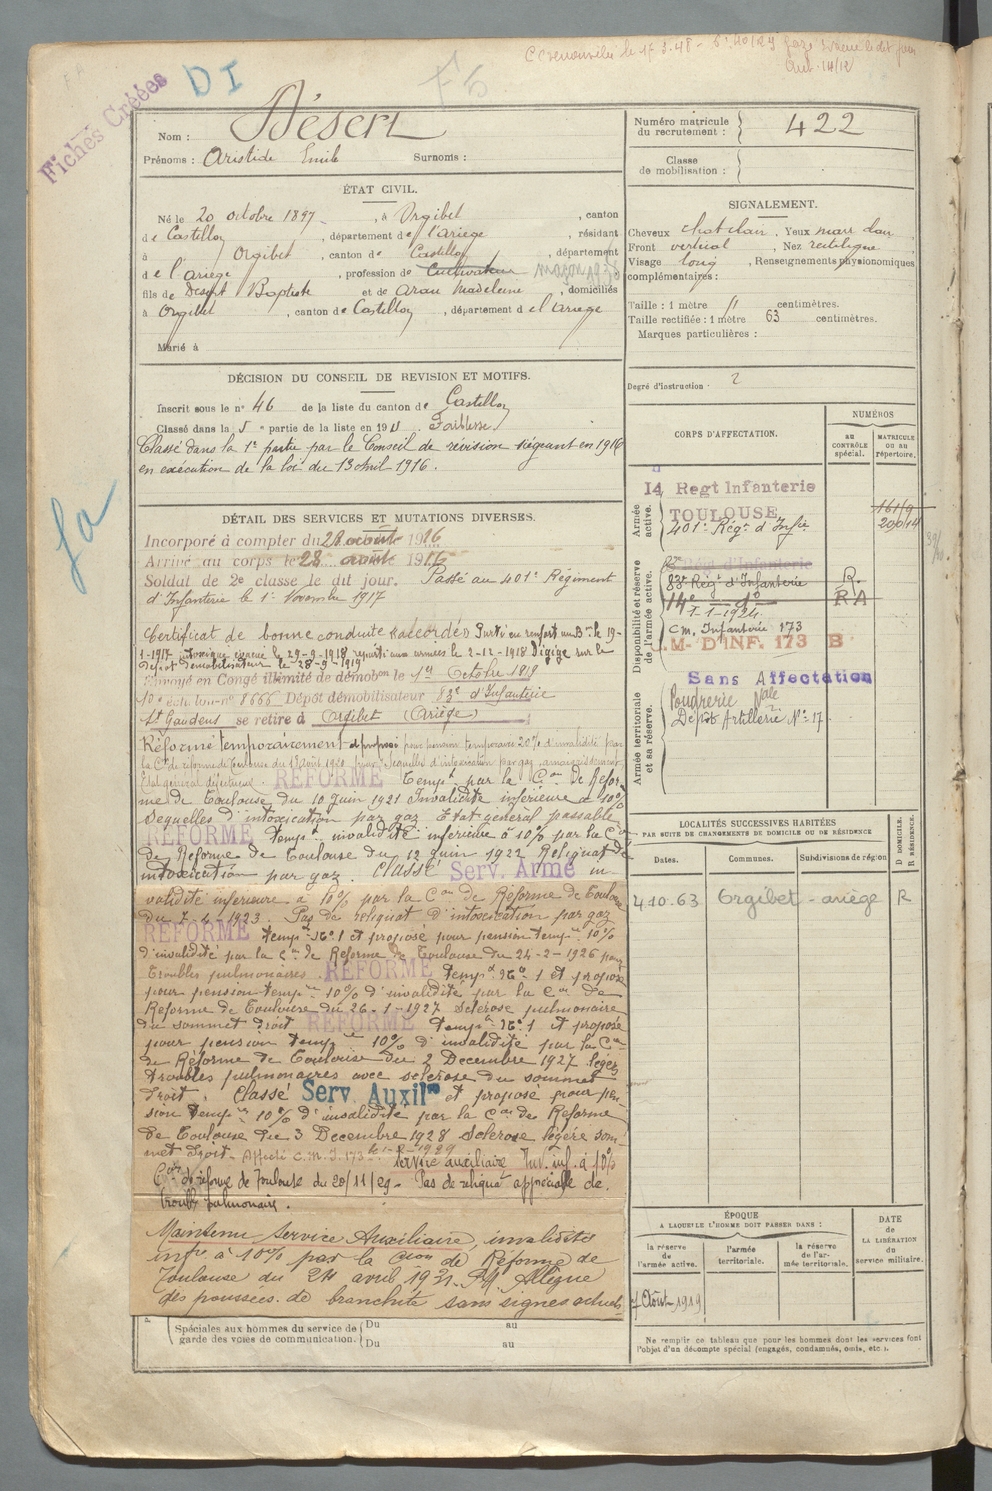 Fichés Créées
DI
Nom : Désert
Prénoms : Aristide Emile Surnoms :
Numéro matricule du recrutement : 422
Classe de mobilisation :
ÉTAT CIVIL.
Né le 20 octobre 1897, à Orgibet, canton
de Castillon, département de l'ariège, résidant
à Orgibet, canton de Castillon, département
de l'ariège, profession de Cultivateur
fils de Désert Baptiste et de Arau Madeleine, domiciliés
à Orgibet, canton de Castillon, département de l'ariège
Marié à
SIGNALEMENT.
Cheveux chat clair. Yeux marr clair
Front vertical, Nez rectiligne
Visage long, Renseignements physionomiques
complémentaires :
Taille : 1 mètre // centimètres.
Taille rectifiée : 1 mètre 63 centimètres.
Marques particulières :
Degré d'instruction : 2
DÉCISION DU CONSEIL DE REVISION ET MOTIFS.
Inscrit sous le n° 46 de la liste du canton de Castillon
Classé dans la 5e partie de la liste en 19 Faiblesse
Classé dans la 1e partie par le Conseil de révision siégeant en 1916
en exécution de la loi du 13 Avril 1916.
DÉTAIL DES SERVICES ET MUTATIONS DIVERSES.
Incorporé à compter du 28 août 1916
Arrivé au corps le 28 août 1916
Soldat de 2e classe le dit jour. Passé au 401e Régiment
d'Infanterie le 1er Novembre 1917
Certificat de bonne conduite "accordé" Parti en renfort le 19-
1-1917 intoxiqué évacué le 29-9-1918 reparti aux armées le 2-12-1918 Dirigé sur le
dépôt démobilisateur le 28-9-1919
Envoyé en Congé illimité de démobon le 1er Octobre 1919
n° 8666 Dépôt démobilisateur 83e d'Infanterie
St Gaudens se retire à Orgibet (Ariège)
Réformé temporairement proposé pour pension temporaire 20% d'invalidité par
la Con de réforme de Toulouse du 13 août 1920 pour séquelles d'intoxication par gaz amaigrissement
Etat général défectueux. RÉFORMÉ Tempt par la Con de Réfor-
me de Toulouse du 10 Juin 1921 Invalidité inférieure à 10%
Séquelles d'intoxication par gaz Etat général passable
RÉFORMÉ tempt invalidité inférieure à 10% par la Con
de Réforme de Toulouse du 12 juin 1922 Reliquat de
intoxication par gaz. Classé Serv. Armé in-
validité inférieure à 10% par la Con de Réforme de Toulouse
du 7-4-1923. Pas de reliquat d'intoxication par gaz
RÉFORMÉ tempt n° 1 et proposé pour pension tempre 10%
d'invalidité par la Con de Réforme de Toulouse du 24-2-1926 pour
troubles pulmonaires. RÉFORMÉ tempt n° 1 et proposé
pour pension tempre 10% d'invalidité par la Con de
Réforme de Toulouse du 26-1-1927 Sclérose pulmonaire
du sommet droit RÉFORMÉ tempt n° 1 et proposé
pour pension tempre 10% d'invalidité par la Con
de Réforme de Toulouse du 2 Décembre 1927 légers
troubles pulmonaires avec sclérose du sommet
droit. Classé Serv Auxilre et proposé pour pen-
sion tempre 10% d'invalidité par la Con de Réforme
de Toulouse du 3 Décembre 1928 Sclérose légère som-
met droit. Affecté C.M.I. 173 le 1-2-1929
Service auxiliaire Inv. inf. à 10%
Con de réforme de Toulouse du 20/11/29. Pas de reliquat appréciable de
trouble pulmonaire.
Maintenu Service Auxiliaire, invalidité
infre à 10% par la Cion de Réforme de
Toulouse du 24 avril 1931. Allègue
des poussées de bronchite sans signes actuels
Spéciales aux hommes du service de garde des voies de communication. Du au
Du au
CORPS D'AFFECTATION.
NUMÉROS
AU CONTRÔLE spécial.
MATRICULE OU AU répertoire.
Armée active.
14e Regt Infanterie
TOULOUSE
401e Régt d'Infie
Disponibilité et réserve de l'armée active.
83e Régt d'Infanterie R.
14e RA
1-1-1924
C.M. Infanterie 173
C.M. D'INF. 173 B
Armée territoriale et sa réserve.
Sans Affectation
Poudrerie Nale
Dépôt Artillerie N° 17
LOCALITÉS SUCCESSIVES HABITÉES
PAR SUITE DE CHANGEMENTS DE DOMICILE OU DE RÉSIDENCE
Dates. Communes. Subdivisions de région D DOMICILE. R RÉSIDENCE.
4.10.63 Orgibet - ariège R
ÉPOQUE
A LAQUELLE L'HOMME DOIT PASSER DANS :
la réserve de l'armée active.
l'armée territoriale.
la réserve de l'armée territoriale.
DATE de LA LIBÉRATION du service militaire.
Août 1919
Ne remplir ce tableau que pour les hommes dont les services font
l'objet d'un décompte spécial (engagés, condamnés, omis, etc.).